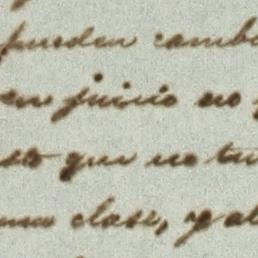 pueden camb
en juicio no
sto que no tu
una clase, y al